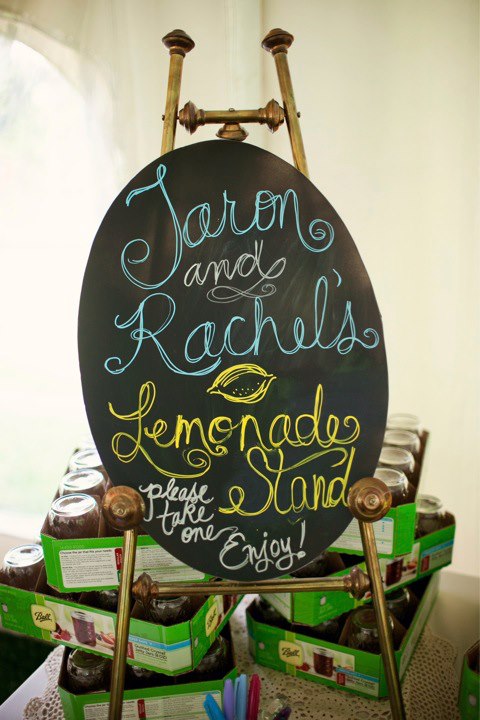 Jaron
and
Rachel's
Lemonade
Stand
please
take
one
Enjoy!
Ball
Ball